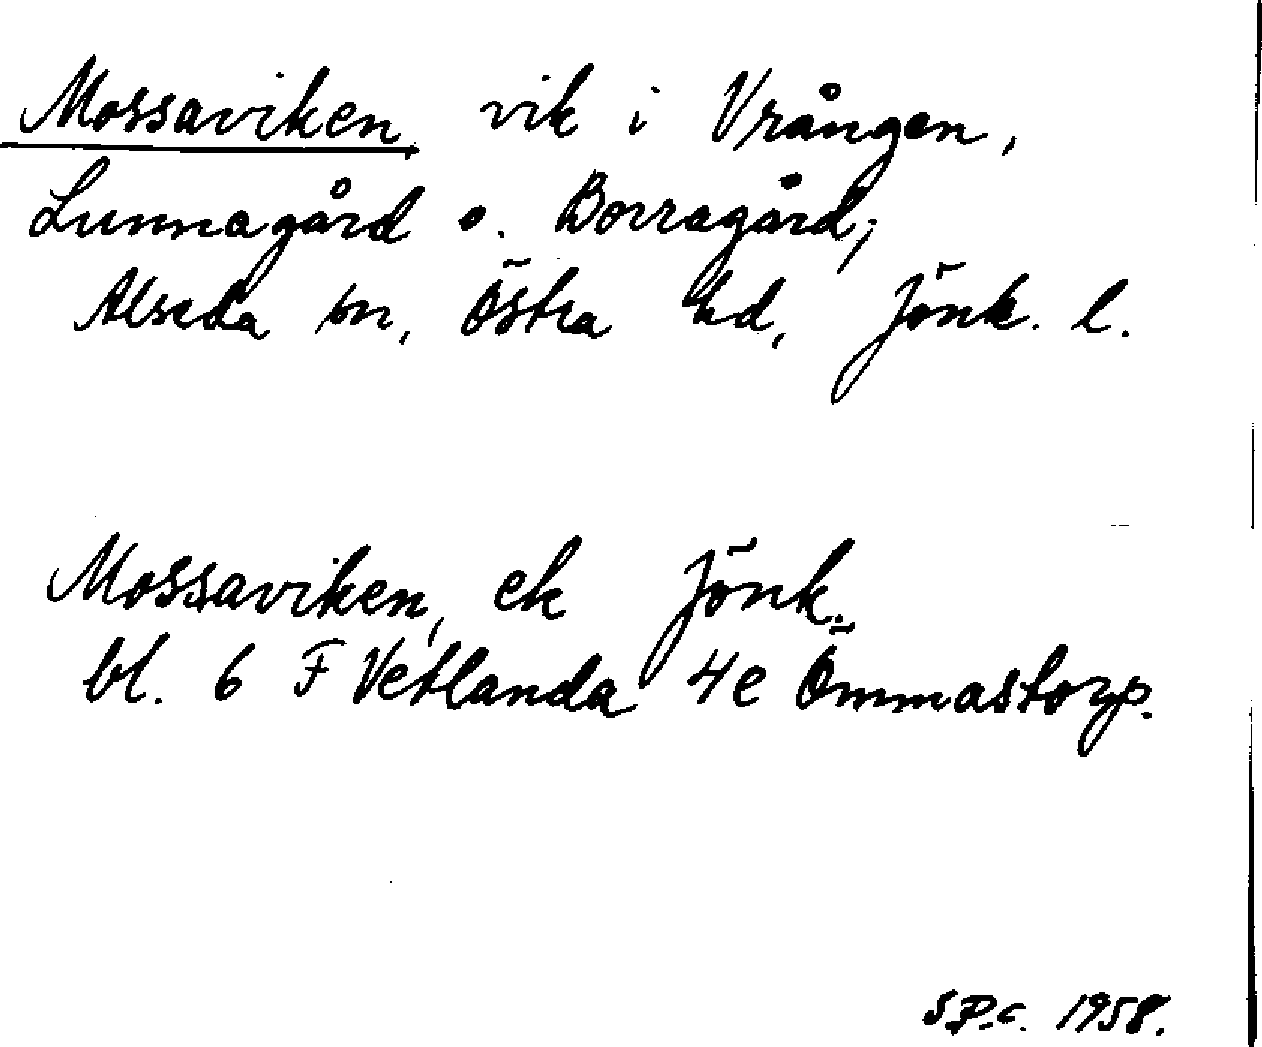 Mossaviken, vik i Vrången,
Lunnagård o. Borragård,
Alseda sn, Östra hd, Jönk. l.
Mossaviken, ek Jönk.
bl. 6 F Vetlanda 4e Ömmastorp.
S.P.c. 1958.